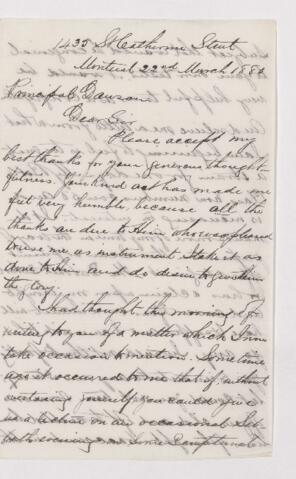 1435 St Catherine Street
Montreal 22nd March 1882
Principal Dawson
Dear Sir
Please accept my
best thanks for your generous thought-
fulness. Your kind act has made me
feel very humble, because all the
thanks are due to Him who was pleased
to use me as instrument. I take it as
done to Him and do desire to give Him
the glory.
I had thought this morning of
writing to you of a matter which I now
take occasion to mention. Sometime
ago it occurred to me that if, without
overtaxing yourself, you could give
us a lecture on an occasional Sab-
bath evening on some Scriptural